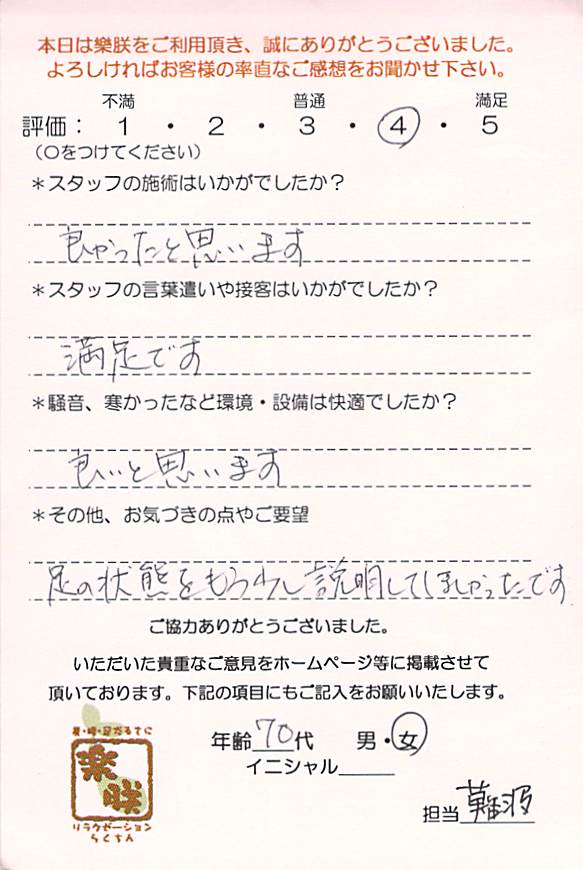 本日は樂朕をご利用頂き、誠にありがとうございました。
よろしければお客様の率直なご感想をお聞かせ下さい。
不満 普通 満足
評価： 1 ・ 2 ・ 3 ・ 4 ・ 5
（○をつけてください）
＊スタッフの施術はいかがでしたか？
良かったと思います
＊スタッフの言葉遣いや接客はいかがでしたか？
満足です
＊騒音、寒かったなど環境・設備は快適でしたか？
良いと思います
＊その他、お気づきの点やご要望
足の状態をもう少し説明してほしかったです
ご協力ありがとうございました。
いただいた貴重なご意見をホームページ等に掲載させて
頂いております。下記の項目にもご記入をお願いいたします。
年齢 70代 男・女
イニシャル
楽朕
リラクゼーション
らくちん
担当 難波